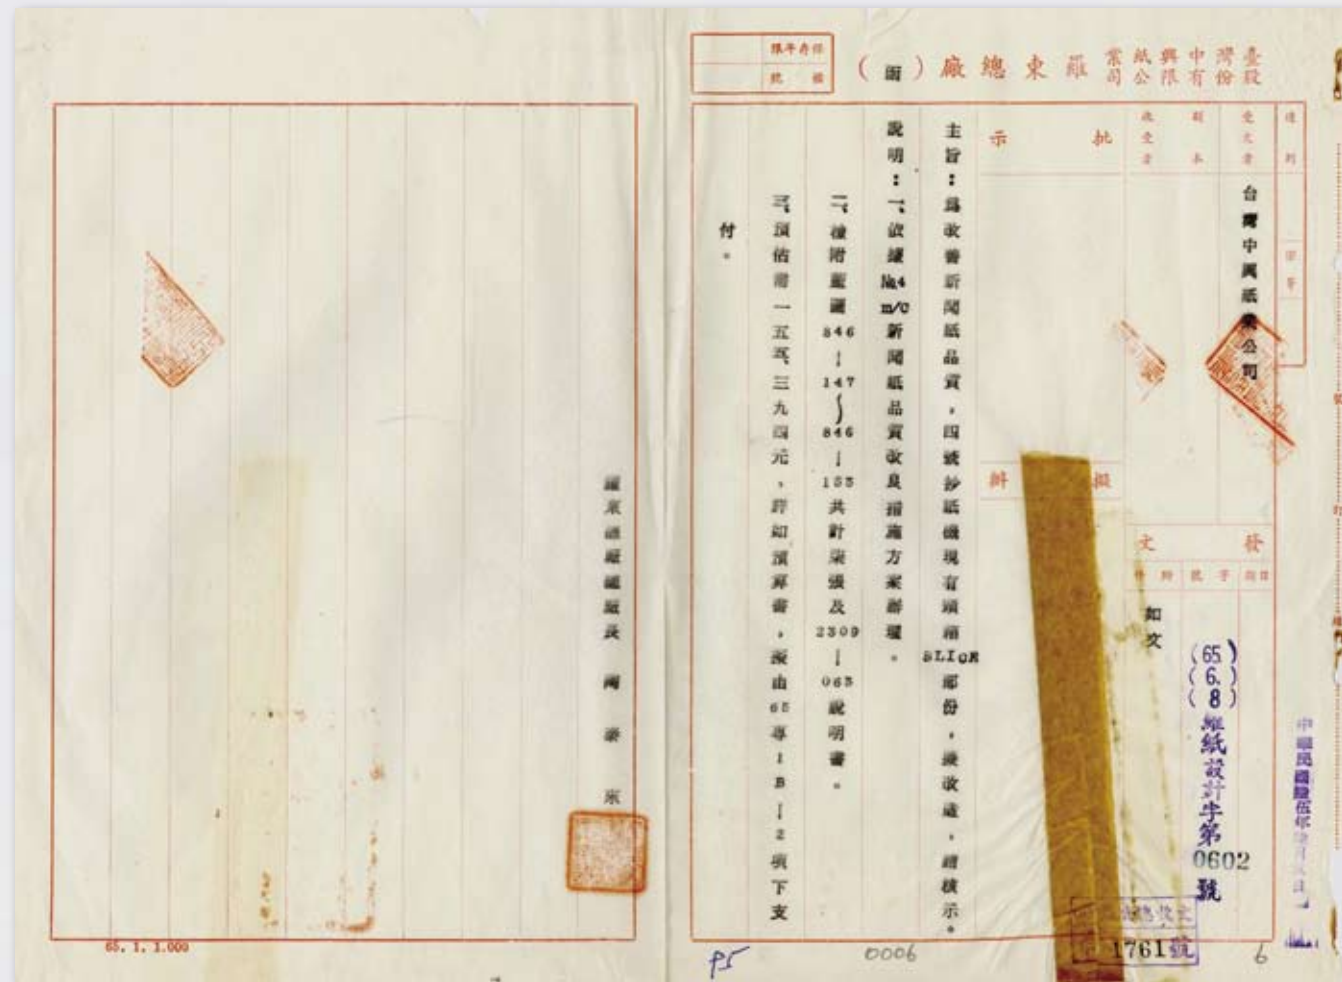 臺灣中興紙業
股份有限公司
羅東總廠(函)
保存年限
檔號
速別
密等
受文者
台灣中興紙業公司
副本
收受者
發文
日期
字號
附件
(65.)
(6.)
(8)
羅紙設計字第
0602
號
如文
批示
擬辦
主旨:為改善新聞紙品質,四號抄紙機現有頭箱SLICE部份,擬改造,請核示。
說明:一、依據№4 m/c新聞紙品質改良措施方案辦理。
二、檢附藍圖846-147~846-153共計柒張及2309-063說明書。
三、預估需一五五、三九四元,詳如預算書,擬由65專1B-2項下支
付。
羅東總廠總廠長
65. 1. 1.000
1761號
P5
0006
6